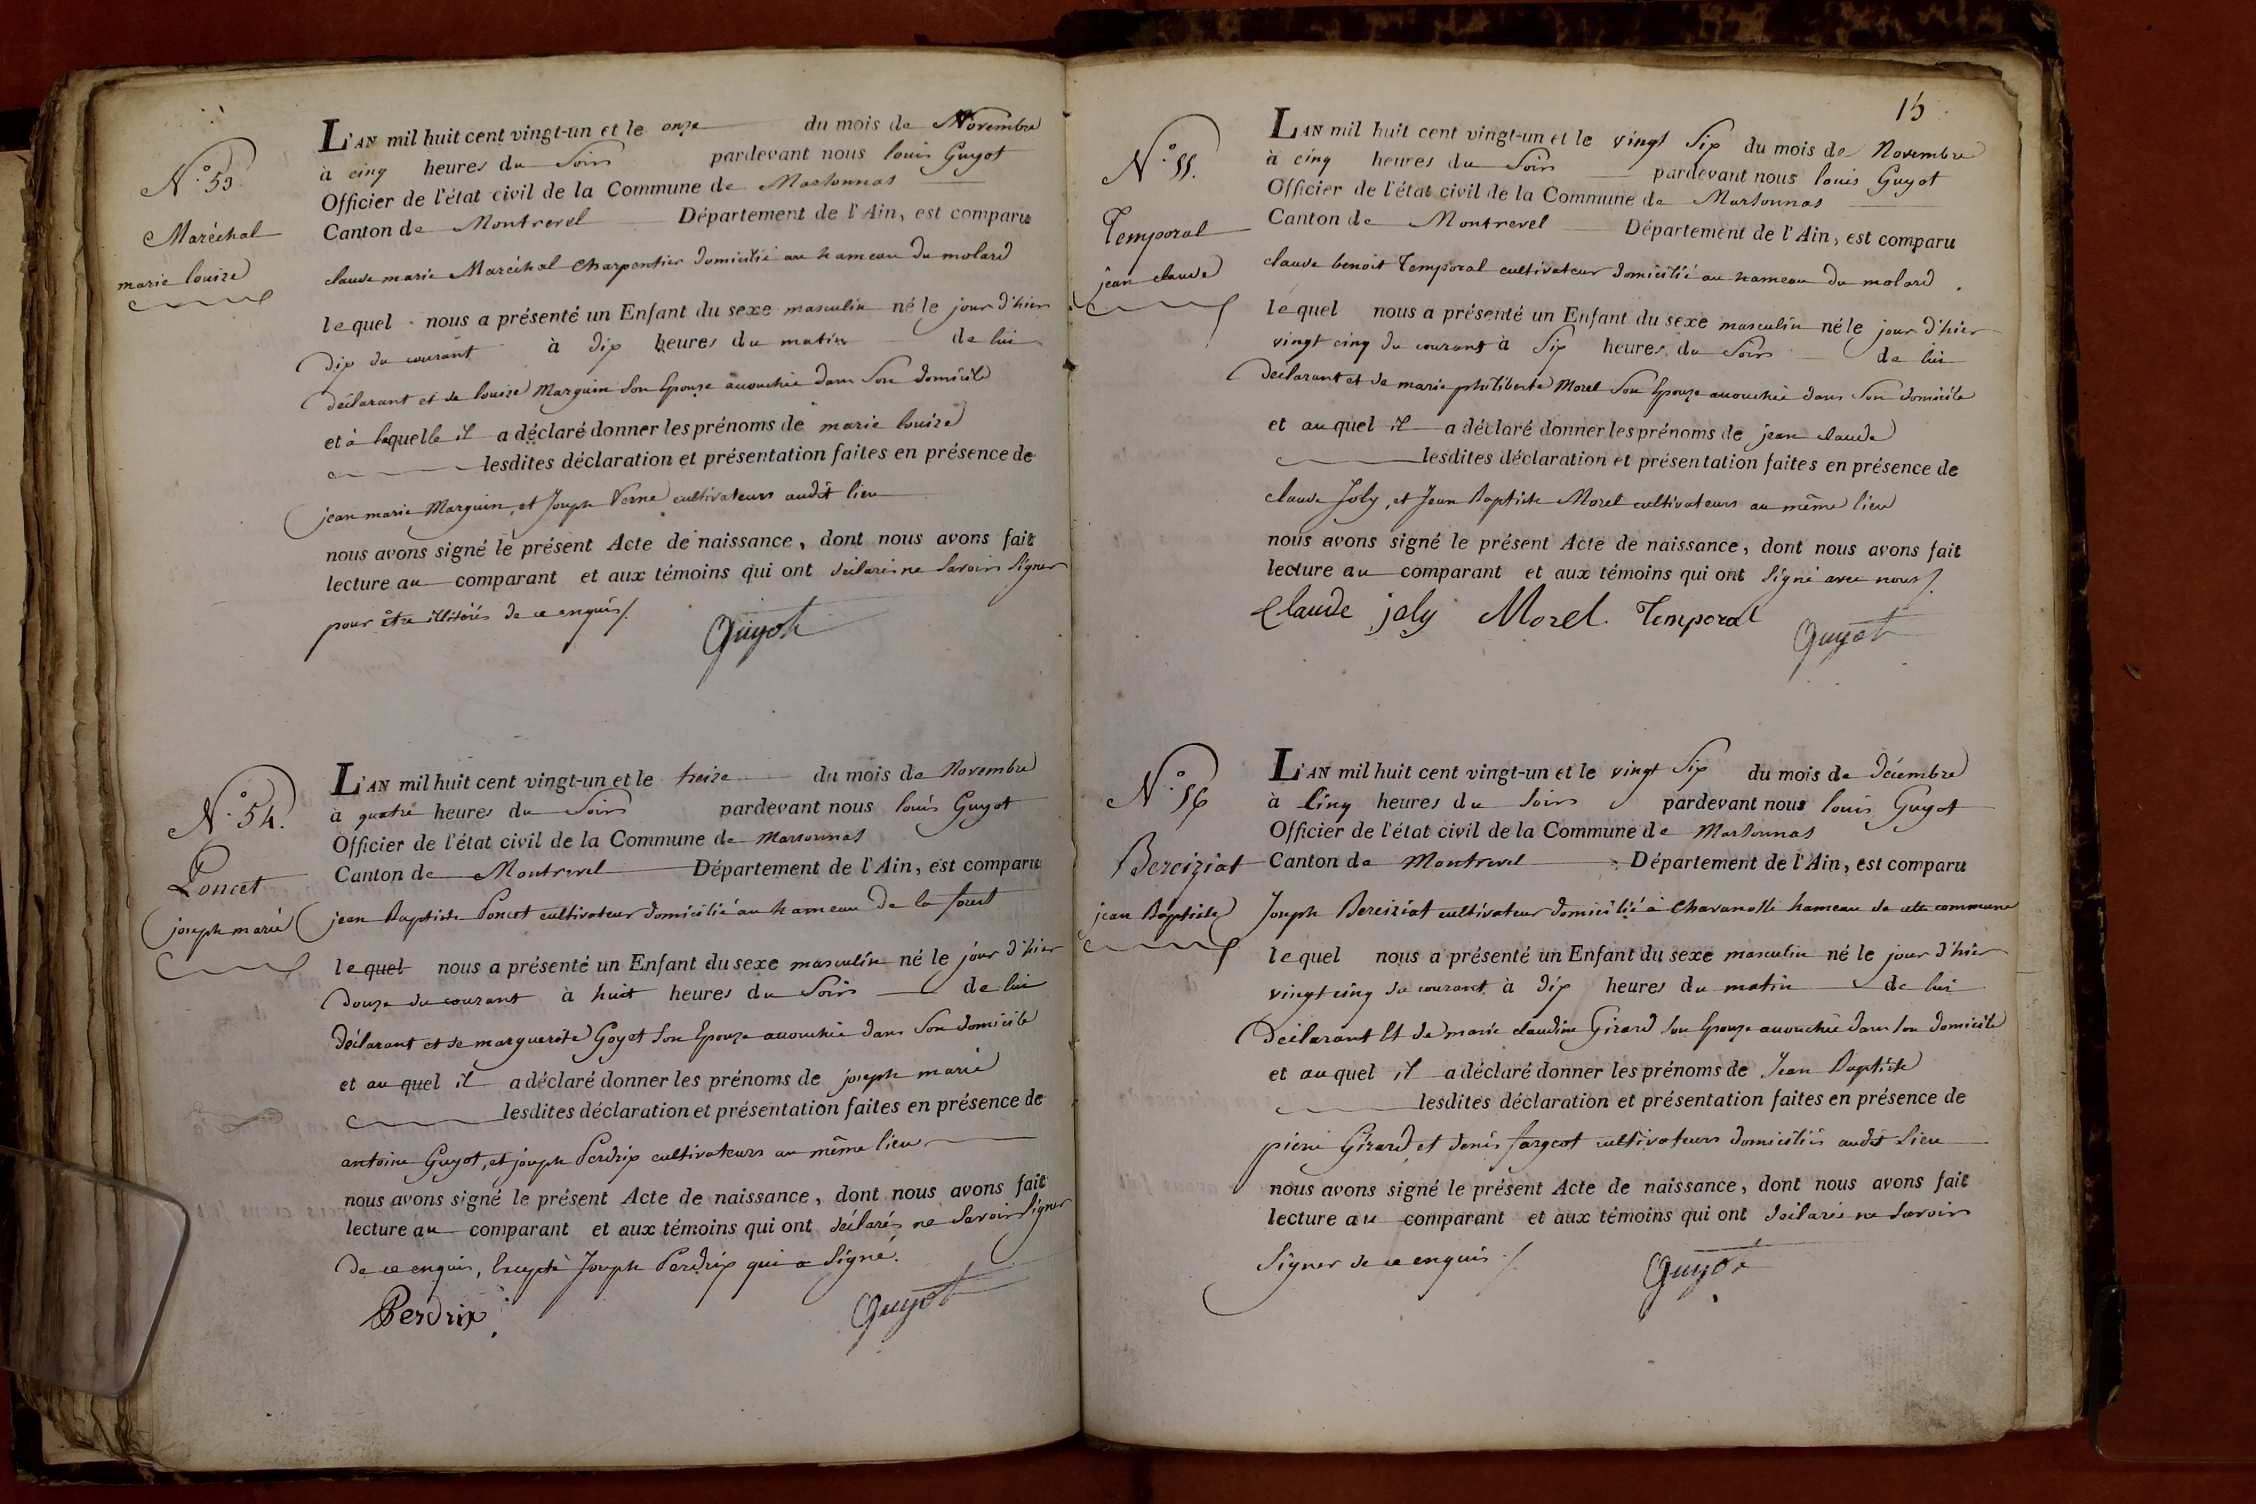 N.° 53.
Maréchal
marie louize
L'AN mil huit cent vingt-un et le onze du mois de Novembre
à cinq heures du Soir pardevant nous louis Guyot
Officier de l'état civil de la Commune de Marsonnas
Canton de Montrevel Département de l'Ain, est comparu
claude marie Maréchal Charpentier domicilié au hameau du molard
lequel nous a présenté un Enfant du sexe masculin né le jour d'hier
dix du courant à dix heures du matin de lui
déclarant et de louize Marguin Son Epouze accouchée dans Son domicile
et à laquelle il a déclaré donner les prénoms de marie louize
lesdites déclaration et présentation faites en présence de
jean marie Marguin, et Joseph Verne cultivateurs audit lieu
nous avons signé le présent Acte de naissance, dont nous avons fait
lecture au comparant et aux témoins qui ont déclarés ne Savoir Signer
pour être illitérés de ce enquis /.
Guyot
N.° 54.
Poncet
joseph marie
L'AN mil huit cent vingt-un et le treize du mois de Novembre
à quatre heures du Soir pardevant nous louis Guyot
Officier de l'état civil de la Commune de marsonnas
Canton de Montrevel Département de l'Ain, est comparu
jean Baptiste Poncet cultivateur domicilié au hameau de la foret
lequel nous a présenté un Enfant du sexe masculin né le jour d'hier
douze du courant à huit heures du Soir de lui
déclarant et de marguerite Goyet Son Epouze accouchée dans Son domicile
et auquel il a déclaré donner les prénoms de joseph marie
lesdites déclaration et présentation faites en présence de
antoine Guyot, et joseph Perdrix cultivateurs au même lieu
nous avons signé le présent Acte de naissance, dont nous avons fait
lecture au comparant et aux témoins qui ont déclarés ne Savoir Signer
de ce enquis, Excepté Joseph Perdrix qui a Signé.
Perdrix
Guyot
15
N.° 55.
Temporal
jean claude
L'AN mil huit cent vingt-un et le vingt Six du mois de Novembre
à cinq heures du Soir pardevant nous louis Guyot
Officier de l'état civil de la Commune de Marsonnas
Canton de Montrevel Département de l'Ain, est comparu
claude benoit Temporal cultivateur domicilié au hameau du molard
lequel nous a présenté un Enfant du sexe masculin né le jour d'hier
vingt cinq du courant à Six heures du Soir de lui
déclarant et de marie philiberte Morel Son Epouze accouchée dans Son domicile
et auquel il a déclaré donner les prénoms de jean claude
lesdites déclaration et présentation faites en présence de
claude Joly, et Jean Baptiste Morel cultivateurs au même lieu
nous avons signé le présent Acte de naissance, dont nous avons fait
lecture au comparant et aux témoins qui ont Signé avec nous /.
Claude joly Morel. Temporal
Guyot
N.° 56
Bereiziat
jean Baptiste
L'AN mil huit cent vingt-un et le vingt Six du mois de décembre
à Cinq heures du Soir pardevant nous louis Guyot
Officier de l'état civil de la Commune de Marsonnas
Canton de Montrevel Département de l'Ain, est comparu
Joseph Bereiziat cultivateur domicilié à Chavanosse hameau de cette commune
lequel nous a présenté un Enfant du sexe masculin né le jour d'hier
vingt cinq du courant à dix heures du matin de lui
déclarant Et de marie claudine Girard Son Epouze accouchée dans Son domicile
et auquel il a déclaré donner les prénoms de Jean Baptiste
lesdites déclaration et présentation faites en présence de
pierre Girard, et denis fargeot cultivateurs domiciliés audit lieu
nous avons signé le présent Acte de naissance, dont nous avons fait
lecture au comparant et aux témoins qui ont déclarés ne Savoir
Signer de ce enquis /.
Guyot